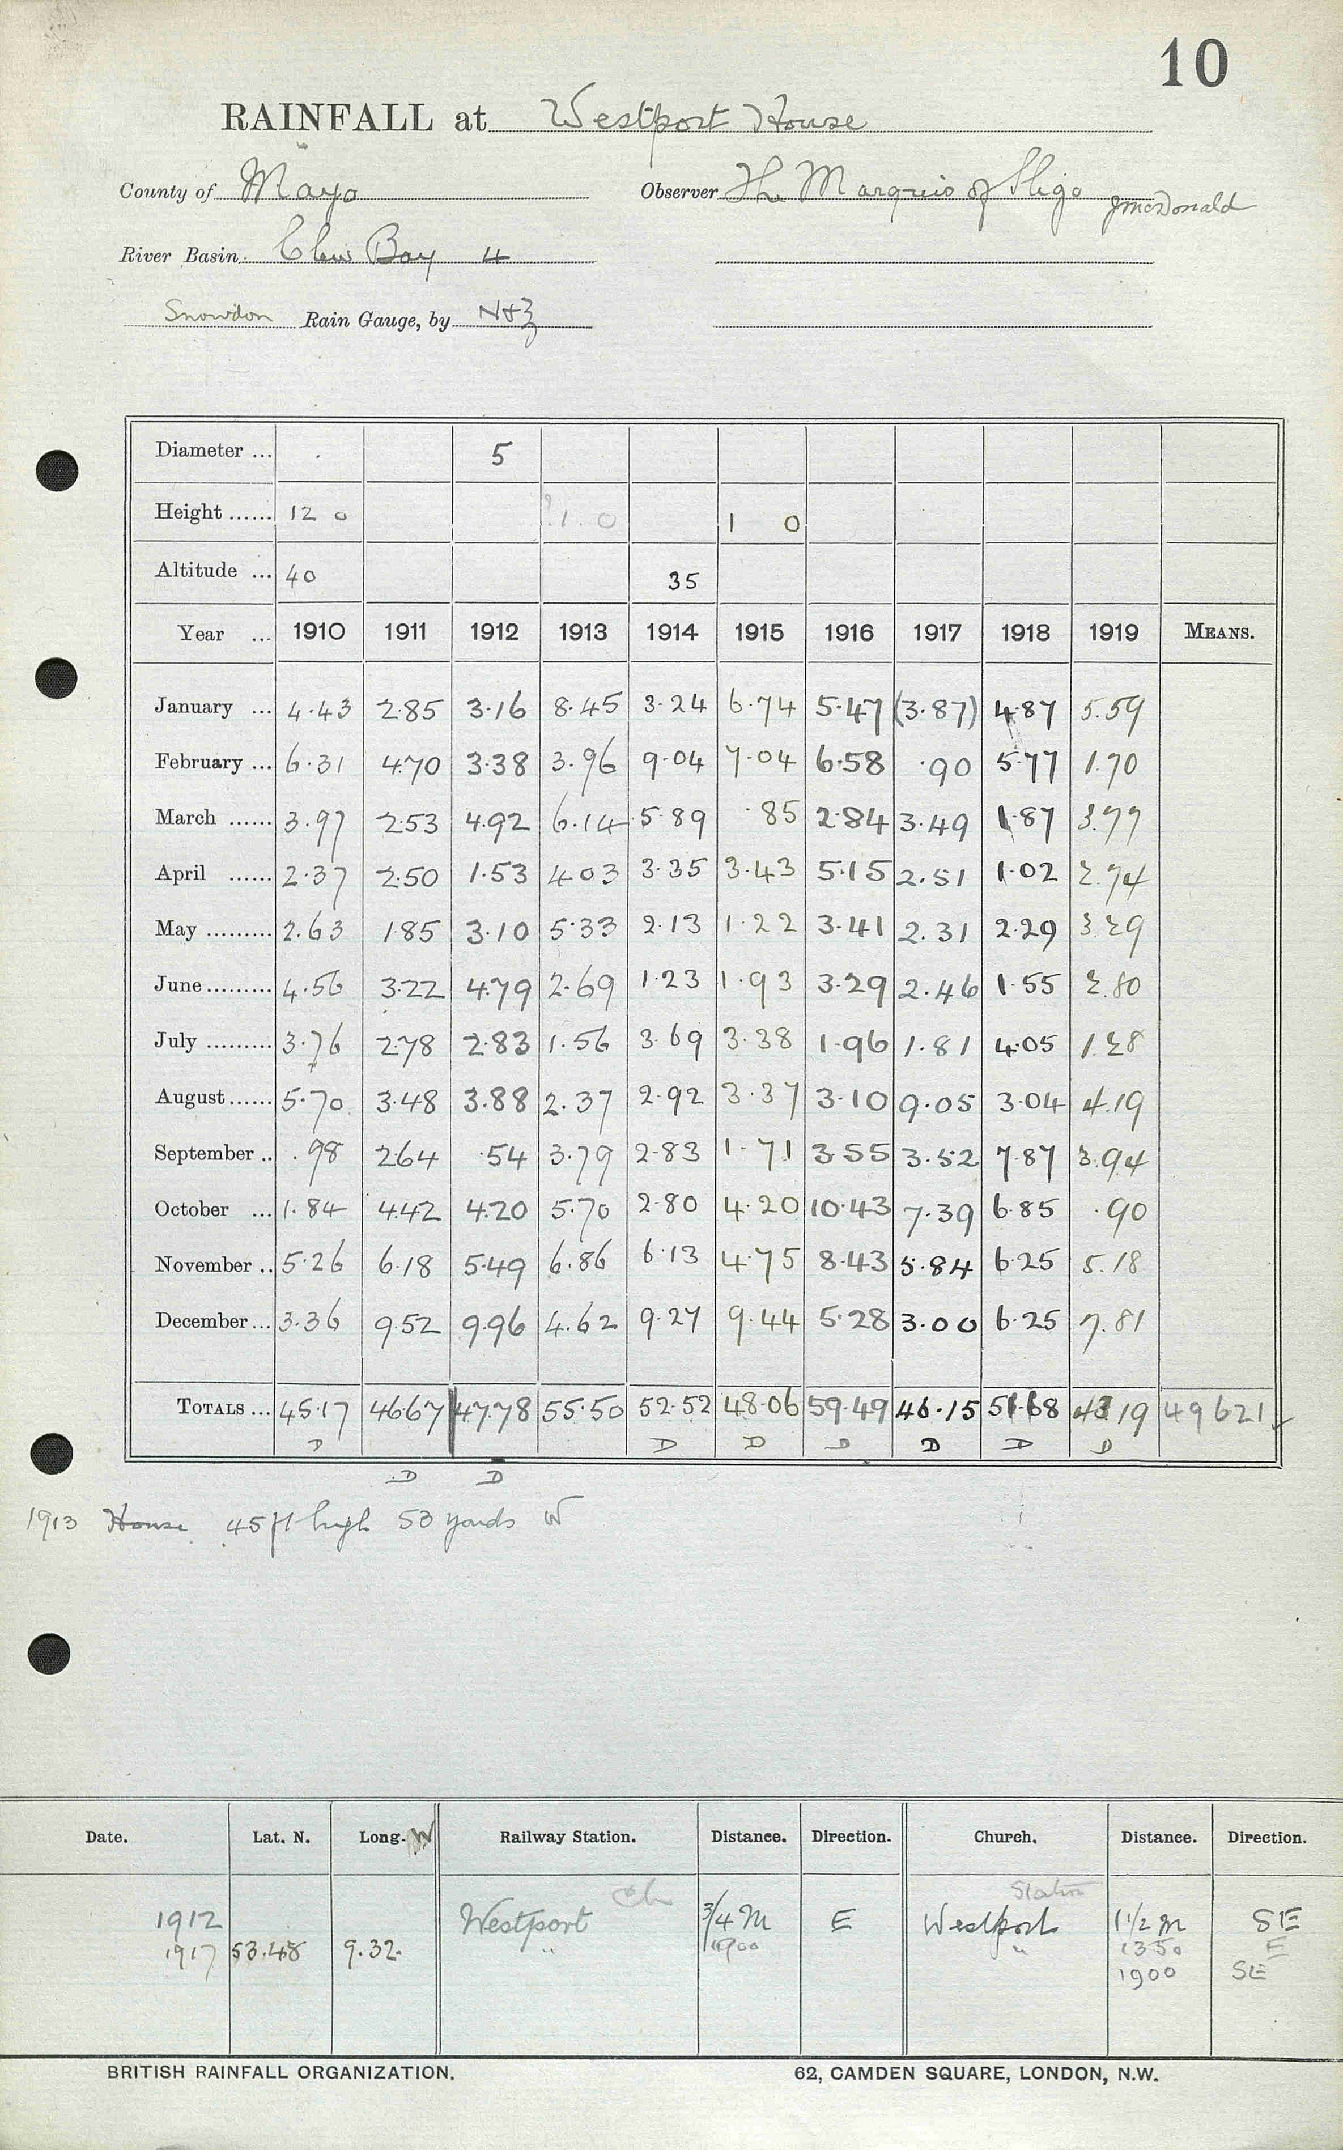 10
RAINFALL at Westport House
County of Mayo Observer The Marquis of Sligo JMcDonald
River Basin. Clew Bay 4
Snowdon Rain Gauge, by N+Z
Diameter ... 5
Height ...... 12 0 ?1.0 1 0
Altitude ... 40 35
Year ... 1910 1911 1912 1913 1914 1915 1916 1917 1918 1919 MEANS.
January ... 4.43 2.85 3.16 8.45 3.24 6.74 5.47 (3.87) 4.87 5.59
February ... 6.31 4.70 3.38 3.96 9.04 7.04 6.58 .90 5.77 1.70
March ...... 3.97 2.53 4.92 6.14 5.89 .85 2.84 3.49 1.87 3.77
April ...... 2.37 2.50 1.53 4.03 3.35 3.43 5.15 2.51 1.02 2.74
May ......... 2.63 1.85 3.10 5.33 2.13 1.22 3.41 2.31 2.29 3.29
June ......... 4.56 3.22 4.79 2.69 1.23 1.93 3.29 2.46 1.55 2.80
July ......... 3.76 2.78 2.83 1.56 3.69 3.38 1.96 1.81 4.05 1.28
August ...... 5.70 3.48 3.88 2.37 2.92 3.37 3.10 9.05 3.04 4.19
September .. .98 2.64 .54 3.79 2.83 1.71 3.55 3.52 7.87 3.94
October ... 1.84 4.42 4.20 5.70 2.80 4.20 10.43 7.39 6.85 .90
November .. 5.26 6.18 5.49 6.86 6.13 4.75 8.43 5.84 6.25 5.18
December ... 3.36 9.52 9.96 4.62 9.27 9.44 5.28 3.00 6.25 7.81
TOTALS ... 45.17 46.67 47.78 55.50 52.52 48.06 59.49 46.15 51.68 43.19 49 621
D D D D D D D
D D
1913 House 45 ft high 53 yards W
Date. Lat. N. Long. W Railway Station. Distance. Direction. Church. Distance. Direction.
Ch Station
1912 Westport 3/4 M E Westport 1 1/2 m SE
1917 53.48 9.32. " 1900 " 1350 E
1900 SE
BRITISH RAINFALL ORGANIZATION. 62, CAMDEN SQUARE, LONDON, N.W.